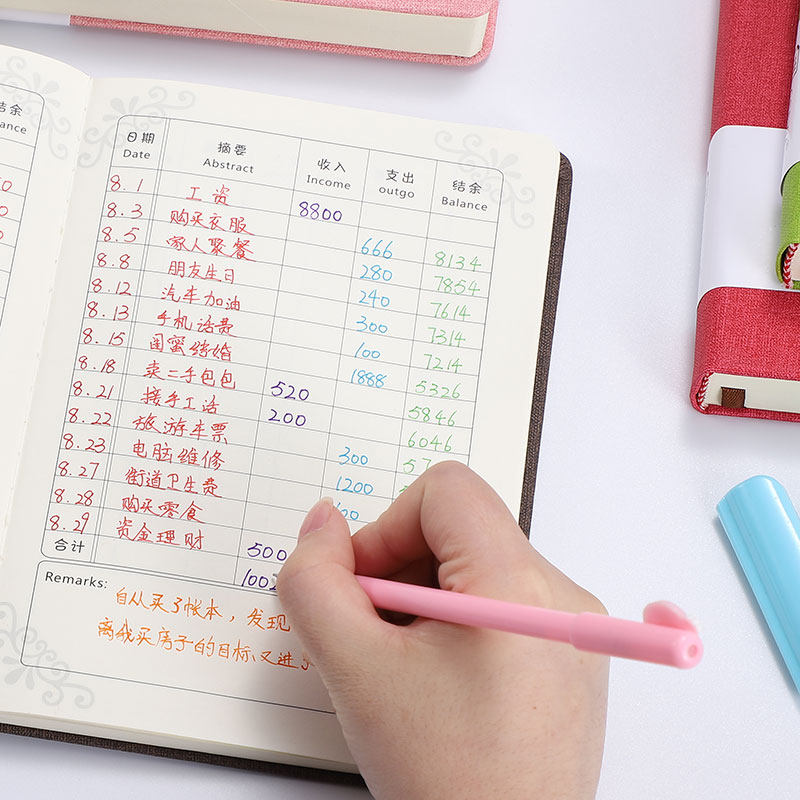 日期 摘要 收入 支出 结余
Date Abstract Income outgo Balance
8.1 工资 8800
8.3 购买衣服 666 8134
8.5 家人聚餐 280 7854
8.8 朋友生日 240 7614
8.12 汽车加油 300 7314
8.13 手机话费 100 7214
8.15 闺蜜结婚 1888 5326
8.18 卖二手包包 520 5846
8.21 接手工活 200 6046
8.22 旅游车票 300
8.23 电脑维修 1200
8.27 街道卫生费
8.28 购买零食
8.29 资金理财 500
合计
Remarks:
自从买了帐本，发现
离我买房子的目标又进了